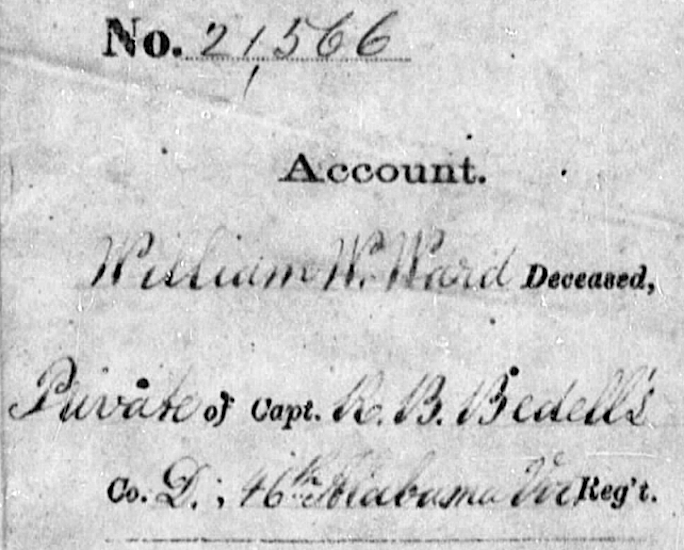 No. 21,566
Account.
William W. Ward Deceased,
Private of Capt. R. B. Bedell's
Co. D., 46th Alabama Vol Reg't.